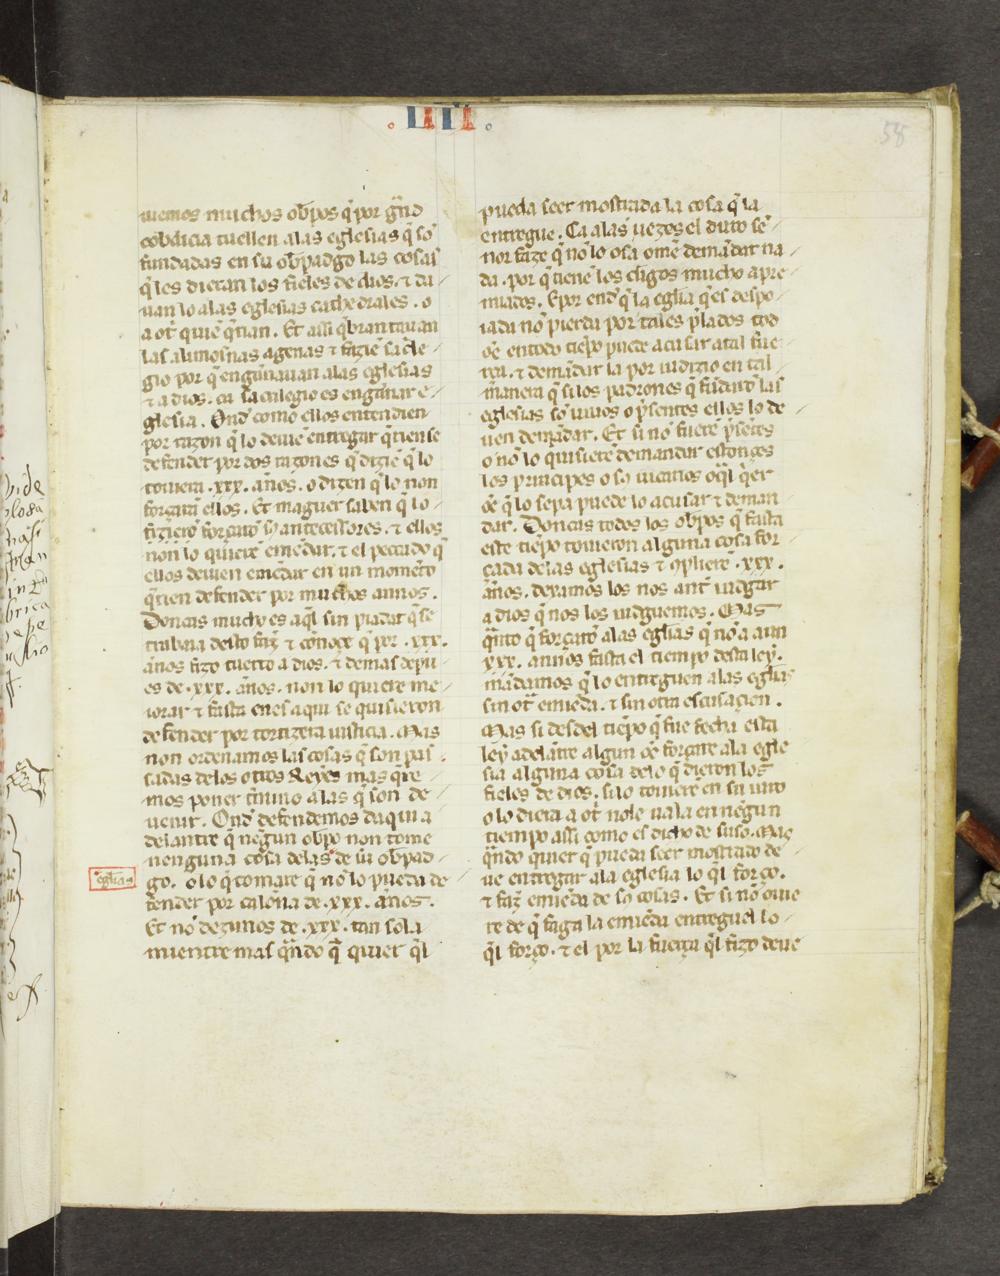 LIIII
58
uemos muchos ob̄pos q̄ por gnd̄
cobdicia tuellen alas eglesias q̄ so
fundadas en su ob̄padgo las cosas
q̄ les dieran los fieles de dios. ⁊ da
uan lo alas eglesias cathedrales. o
a ot̄ quiē q̄rian. Et assi q̄brantauan
las almosnas agenas ⁊ faziē sacle
gio por q̄ engannauan alas eglesias
⁊ a dios. ca sacrilegio es engannar e
glesia. Ond̄ como ellos entendien
por razon q̄ lo deuiē entregar q̄rien se
defender por dos razones q̄ diziē q̄ lo
touiera .xxx. años. o dizen q̄ lo non
forçara ellos. Et maguer saben q̄ lo
fiziero forçaro ss antecessores. ⁊ ellos
non lo quierē emēdar. ⁊ el peccado q̄
ellos deuien emēdar en un momēto
q̄rien defender por muchos annos.
Doncas mucho es aq̄l sin piadat q̄ se
trabaia desto faz̄ ⁊ conoçe q̄ por .xxx.
años fizo tuerto a dios. ⁊ demas depu
es de .xxx. años. non lo quiere me
iorar ⁊ fasta en es aqui se quisieron
defender por tortizera iusticia. Mas
non ordenamos las cosas q̄ son pas
sadas delos otros Reyes mas q̄re
mos poner t̄mino a las q̄ son de
uenir. Ond̄ defendemos daqui a
delantre q̄ negun ob̄po non tome
nenguna cosa delas de su ob̄pad
eglias
go. o lo q̄ tomare q̄ no lo pueda de
fender por calona de .xxx. años.
Et no dezimos de .xxx. tan sola
mientre mas q̄ndo q̄ quier q̄l
pueda seer mostrada la cosa q̄ la
entregue. Ca alas uezes el duro se
nor faze q̄ no lo osa omē demādar na
da. por q̄ tiene los cl̄igos mucho apre
miados. E por end̄ q̄ la egl̄ia q̄ es despo
iada no pierda por tales p̄lados tod
oē en todo tiēpo puede acusar atal fue
rça. ⁊ demādar la por iudizio en tal
manera q̄ si los padrones q̄ fūdaro las
eglesias so uiuos o p̄sentes ellos lo de
uen demādar. Et si no fuere p̄sētes
o no lo quisiere demandar estonçes
los principes o ss uicarios o q̄l q̄er
oē q̄ lo sepa puede lo acusar ⁊ deman
dar. Doncas todos los ob̄pos q̄ fasta
este tiēpo touieron alguna cosa for
çada delas eglesias ⁊ 9pliere .xxx.
años. dexamos los nos ant̄ iudgar
a dios q̄ nos los iudguemos. Mas
q̄nto q̄ forçaro alas egl̄ias q̄ no a aun
xxx. annos fasta el tiempo desta ley.
mādamos q̄ lo entreguen alas egl̄ias
sin ot̄a emieda. ⁊ sin otra escusacien.
Mas si desdel tiēpo q̄ fue fecha esta
ley adelāte algun oē forçare ala egle
sia alguna cosa delo q̄ dieron los
fieles de dios. si lo touiere en su uito
o lo diera a ot̄ nole uala en negun
tiempo assi como es dicho de suso. mas
q̄ndo quier q̄ pueda seer mostrado de
ue entregar ala eglesia lo q̄l forço.
⁊ faz̄ emieda de ss cosas. Et si no ouie
re de q̄ faga la emieda entreguel lo
q̄l forço. ⁊ el por la fuerça q̄l fizo deue